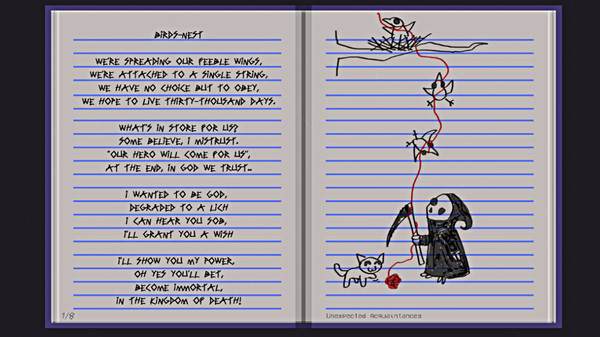 BIRDS-NEST
WE'RE SPREADING OUR FEEBLE WINGS,
WE'RE ATTACHED TO A SINGLE STRING,
WE HAVE NO CHOICE BUT TO OBEY,
WE HOPE TO LIVE THIRTY-THOUSAND DAYS.
WHAT'S IN STORE FOR US?
SOME BELIEVE, I MISTRUST.
"OUR HERO WILL COME FOR US",
AT THE END, IN GOD WE TRUST...
I WANTED TO BE GOD,
DEGRADED TO A LICH
I CAN HEAR YOU SOB,
I'LL GRANT YOU A WISH
I'LL SHOW YOU MY POWER,
OH YES YOU'LL BET,
BECOME IMMORTAL,
IN THE KINGDOM OF DEATH!
1/8
Unexpected Acquaintances